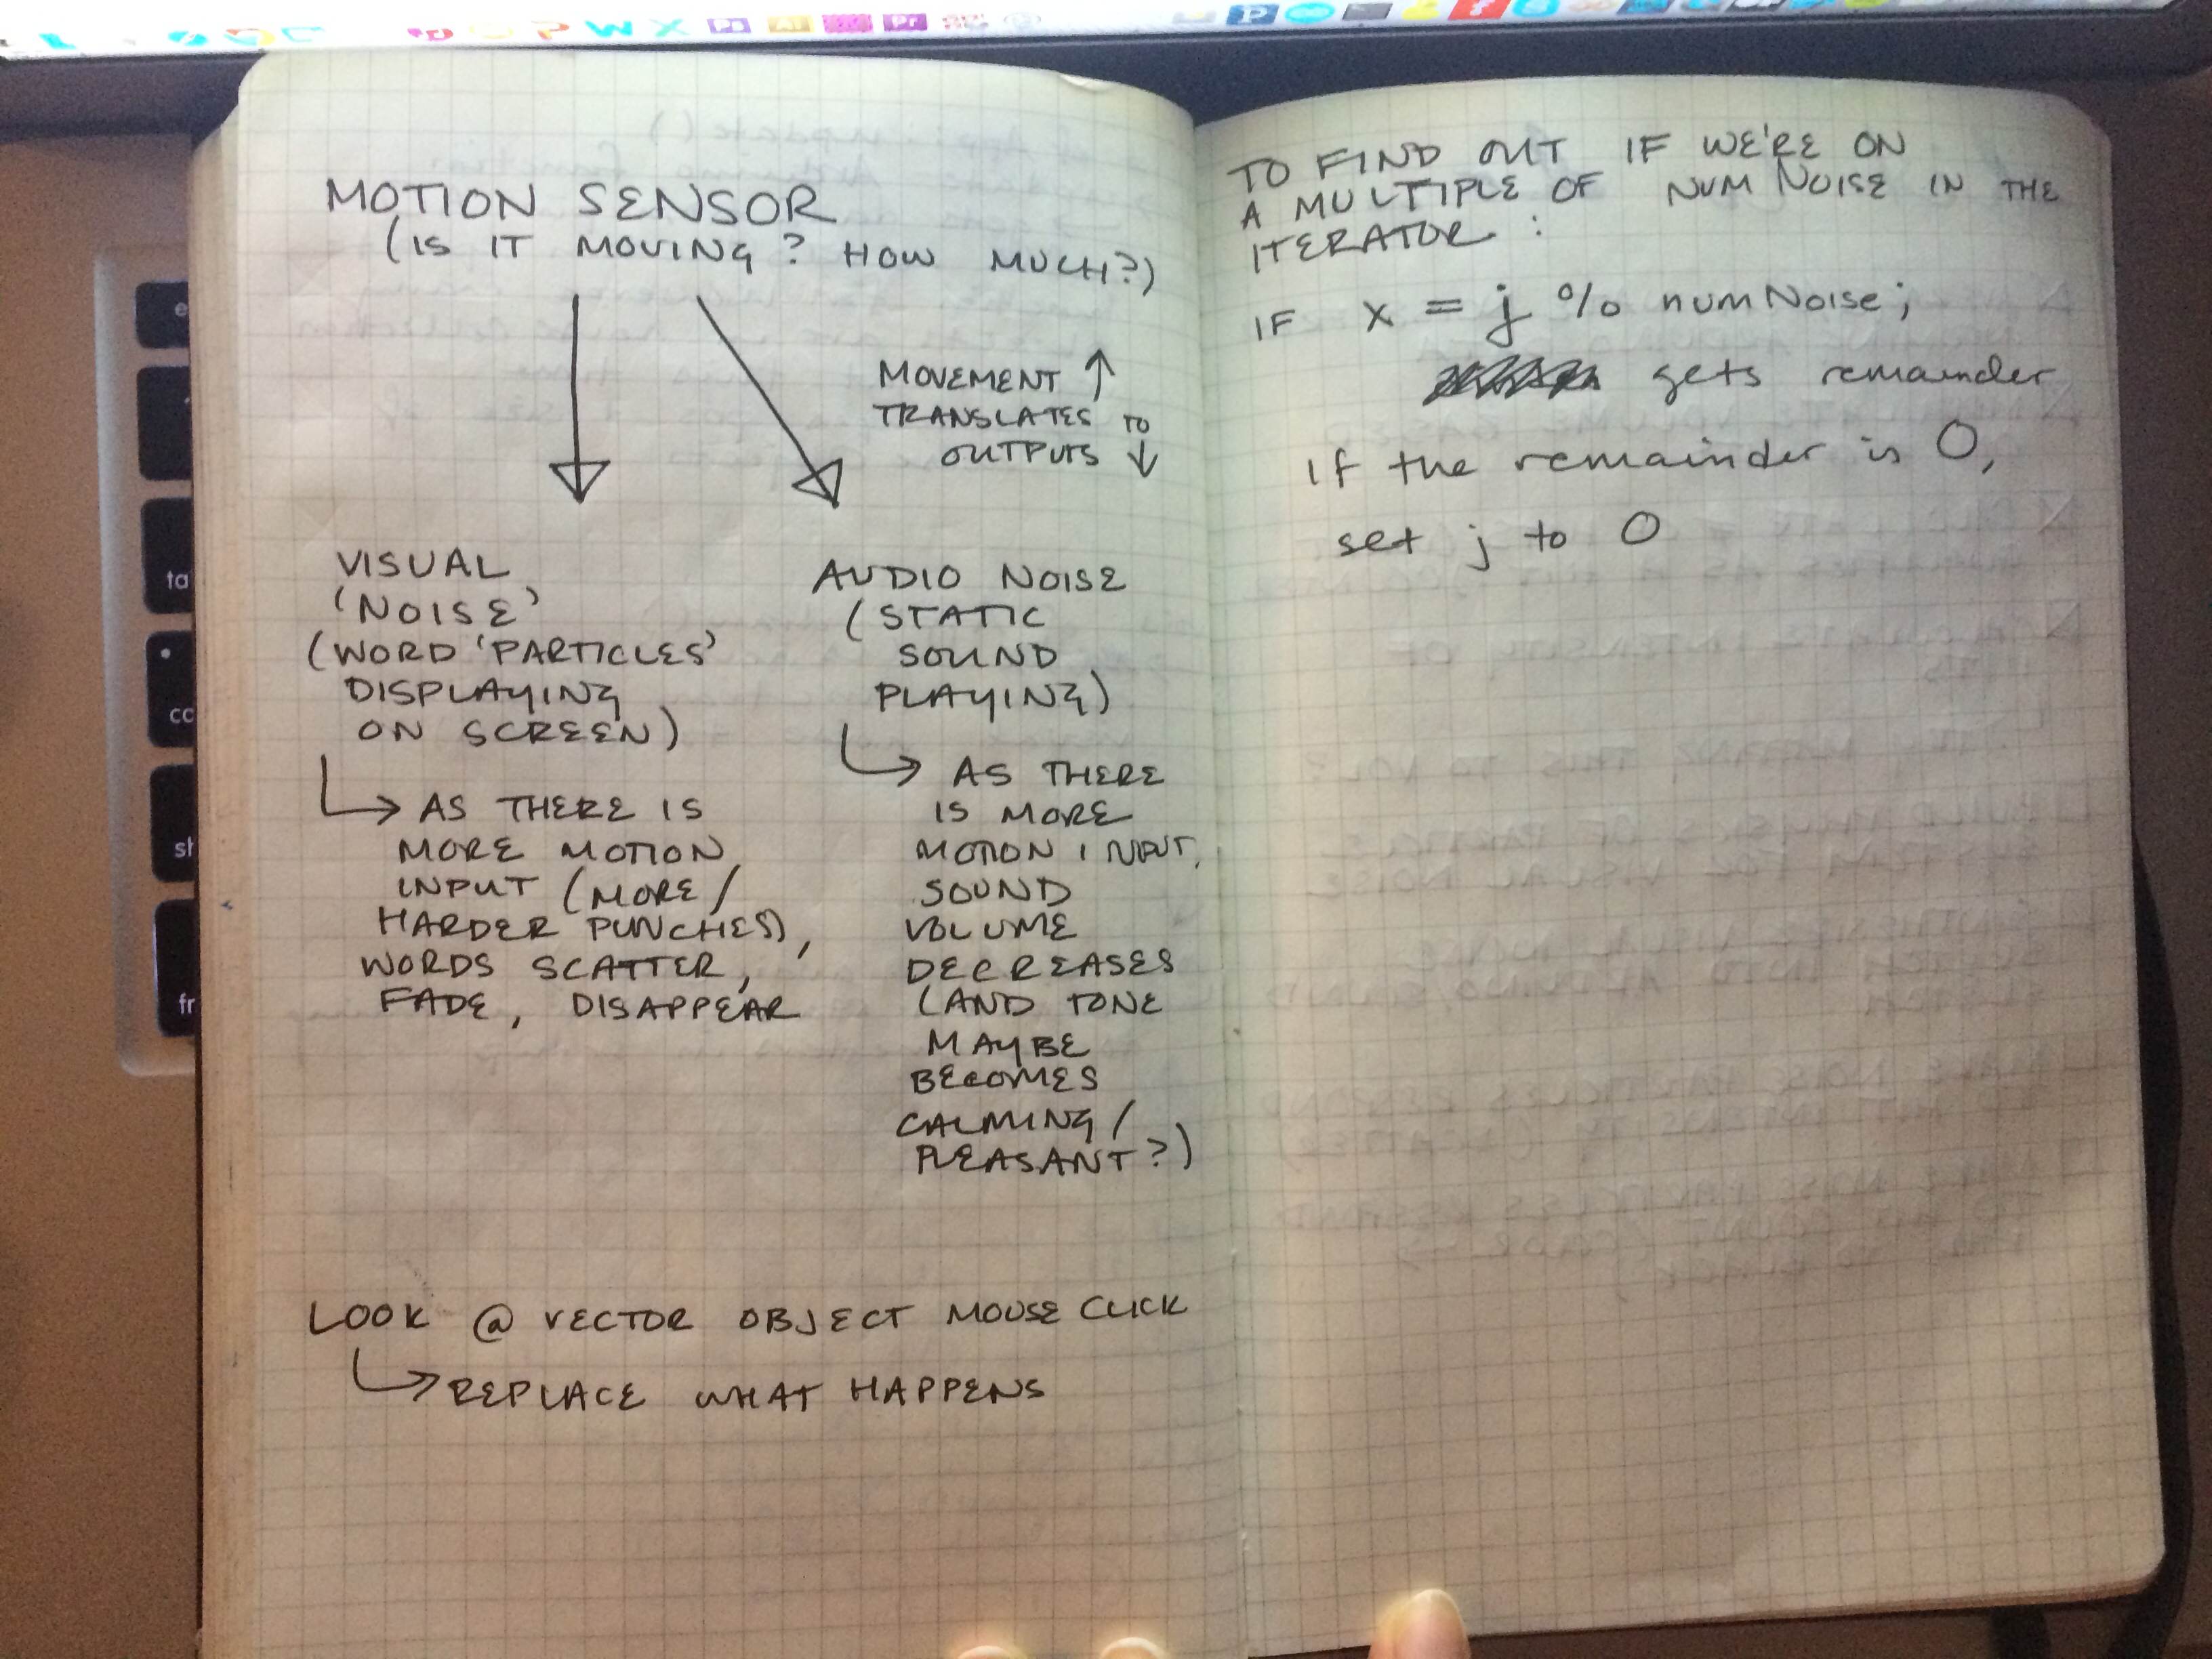 MOTION SENSOR
(IS IT MOVING? HOW MUCH?)
MOVEMENT ↑
TRANSLATES TO
OUTPUTS ↓
VISUAL
'NOISE'
(WORD 'PARTICLES'
DISPLAYING
ON SCREEN)
↳ AS THERE IS
MORE MOTION
INPUT (MORE/
HARDER PUNCHES),
WORDS SCATTER,
FADE, DISAPPEAR
AUDIO NOISE
(STATIC
SOUND
PLAYING)
↳ AS THERE
IS MORE
MOTION INPUT,
SOUND
VOLUME
DECREASES
(AND TONE
MAYBE
BECOMES
CALMING/
PLEASANT?)
LOOK @ VECTOR OBJECT MOUSE CLICK
↳ REPLACE WHAT HAPPENS
TO FIND OUT IF WE'RE ON
A MULTIPLE OF NUM NOISE IN THE
ITERATOR:
IF X = j % numNoise;
gets remainder
If the remainder is 0,
set j to 0
fr
sh
cc
ta
e